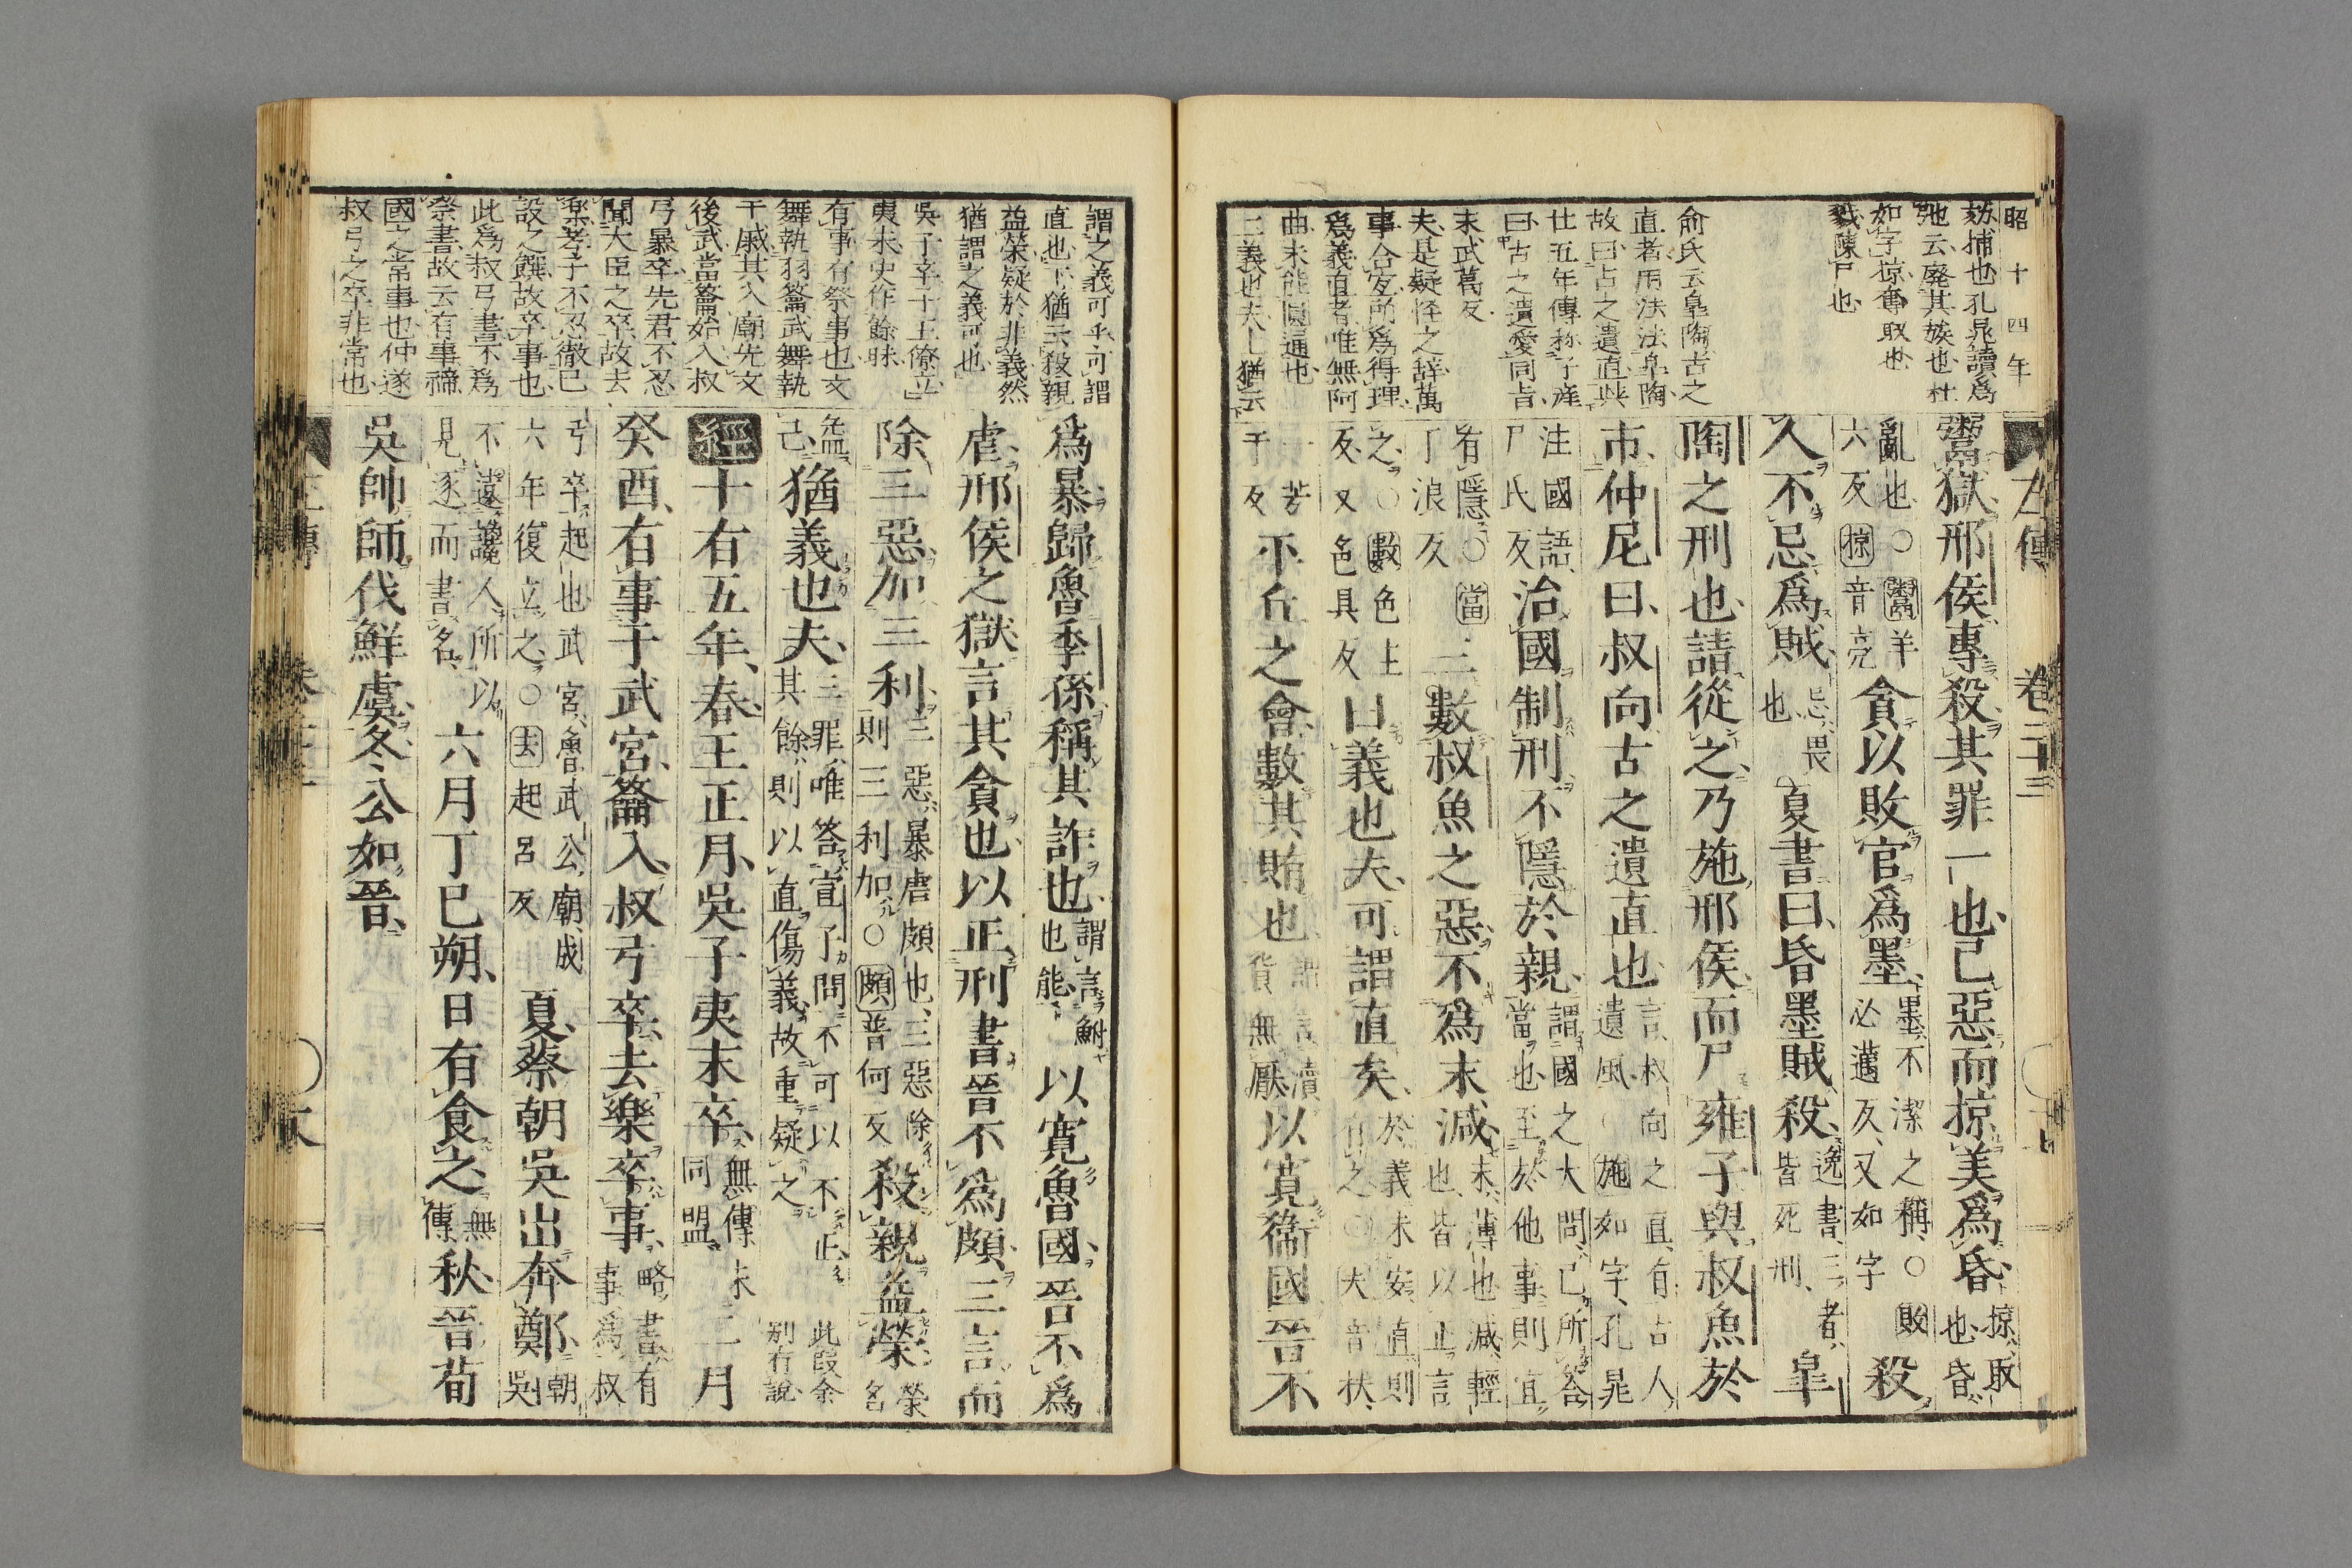 昭十四年
劾捕也孔晁讀爲
弛云廢其族也杜
如字掠奪取也
戮陳尸也
俞氏云皐陶古之
直者用法法皐陶
故曰古之遺直與
仕五年傳称子産
曰古之遺愛同旨
末武萬反
夫是疑怪之辞萬
事合宜所爲得理
爲義直者唯無阿
曲未能圓通也
三義也夫上猶云
左傳 卷二十三
鬻獄邢侯專殺其罪一也己惡而掠美爲昏 掠取也昏
亂也○鬻羊六反掠音亮 貪以敗官爲墨 墨不潔之稱○敗必邁反又如字 殺
人不忌爲賊 忌畏也 夏書曰昏墨賊殺 逸書三者皆死刑 皐
陶之刑也請從之乃施邢侯而尸雍子與叔魚於
市仲尼曰叔向古之遺直也 言叔向之直有古人遺風 施如字孔晁
注國語尸氏反 治國制刑不隱於親 謂國之大問己所答當也至於他事則宜
有隱○當丁浪反 三數叔魚之惡不爲末減 末薄也減輕也皆以正言
之○數色主反又色具反 曰義也夫可謂直矣 於義未安直則有之○夫音扶
十芳于反 平丘之會數其賄也 謂言瀆貨無厭 以寛衞國晉不
謂之義可乎可謂
直也下猶云殺親
益榮疑於非義然
猶謂之義可也
吳子卒十五僚立
夷末史作餘眛
有事有祭事也文
舞執羽籥武舞執
干戚其入廟先文
後武當籥始入叔
弓暴卒先君不忍
聞大臣之卒故去
樂孝子不忍徹已
設之饌故卒事也
此爲叔弓書不爲
祭書故云有事禘
國之常事也仲遂
叔弓之卒非常也
爲暴歸魯季孫稱其詐也 謂言鮒也能 以寬魯國晉不爲
虐邢侯之獄言其貪也以正刑書晉不爲頗三言而
除三惡加三利 三惡暴虐頗也三惡除則三利加○頗普何反 殺親益榮 榮名
益己 猶義也夫 三罪唯答宣子問不可以不正其餘則以直傷義故重疑之 此段余別有說
經十有五年春王正月吳子夷末卒 無傳未同盟 二月
癸酉有事于武宮籥入叔弓卒去樂卒事 略書有事爲叔
弓卒起也武宮魯武公廟成六年復立之○去起呂反 夏蔡朝吳出奔鄭 朝吳
不遠讒人所以見逐而書名 六月丁巳朔日有食之 無傳 秋晉荀
吳帥師伐鮮虞冬公如晉